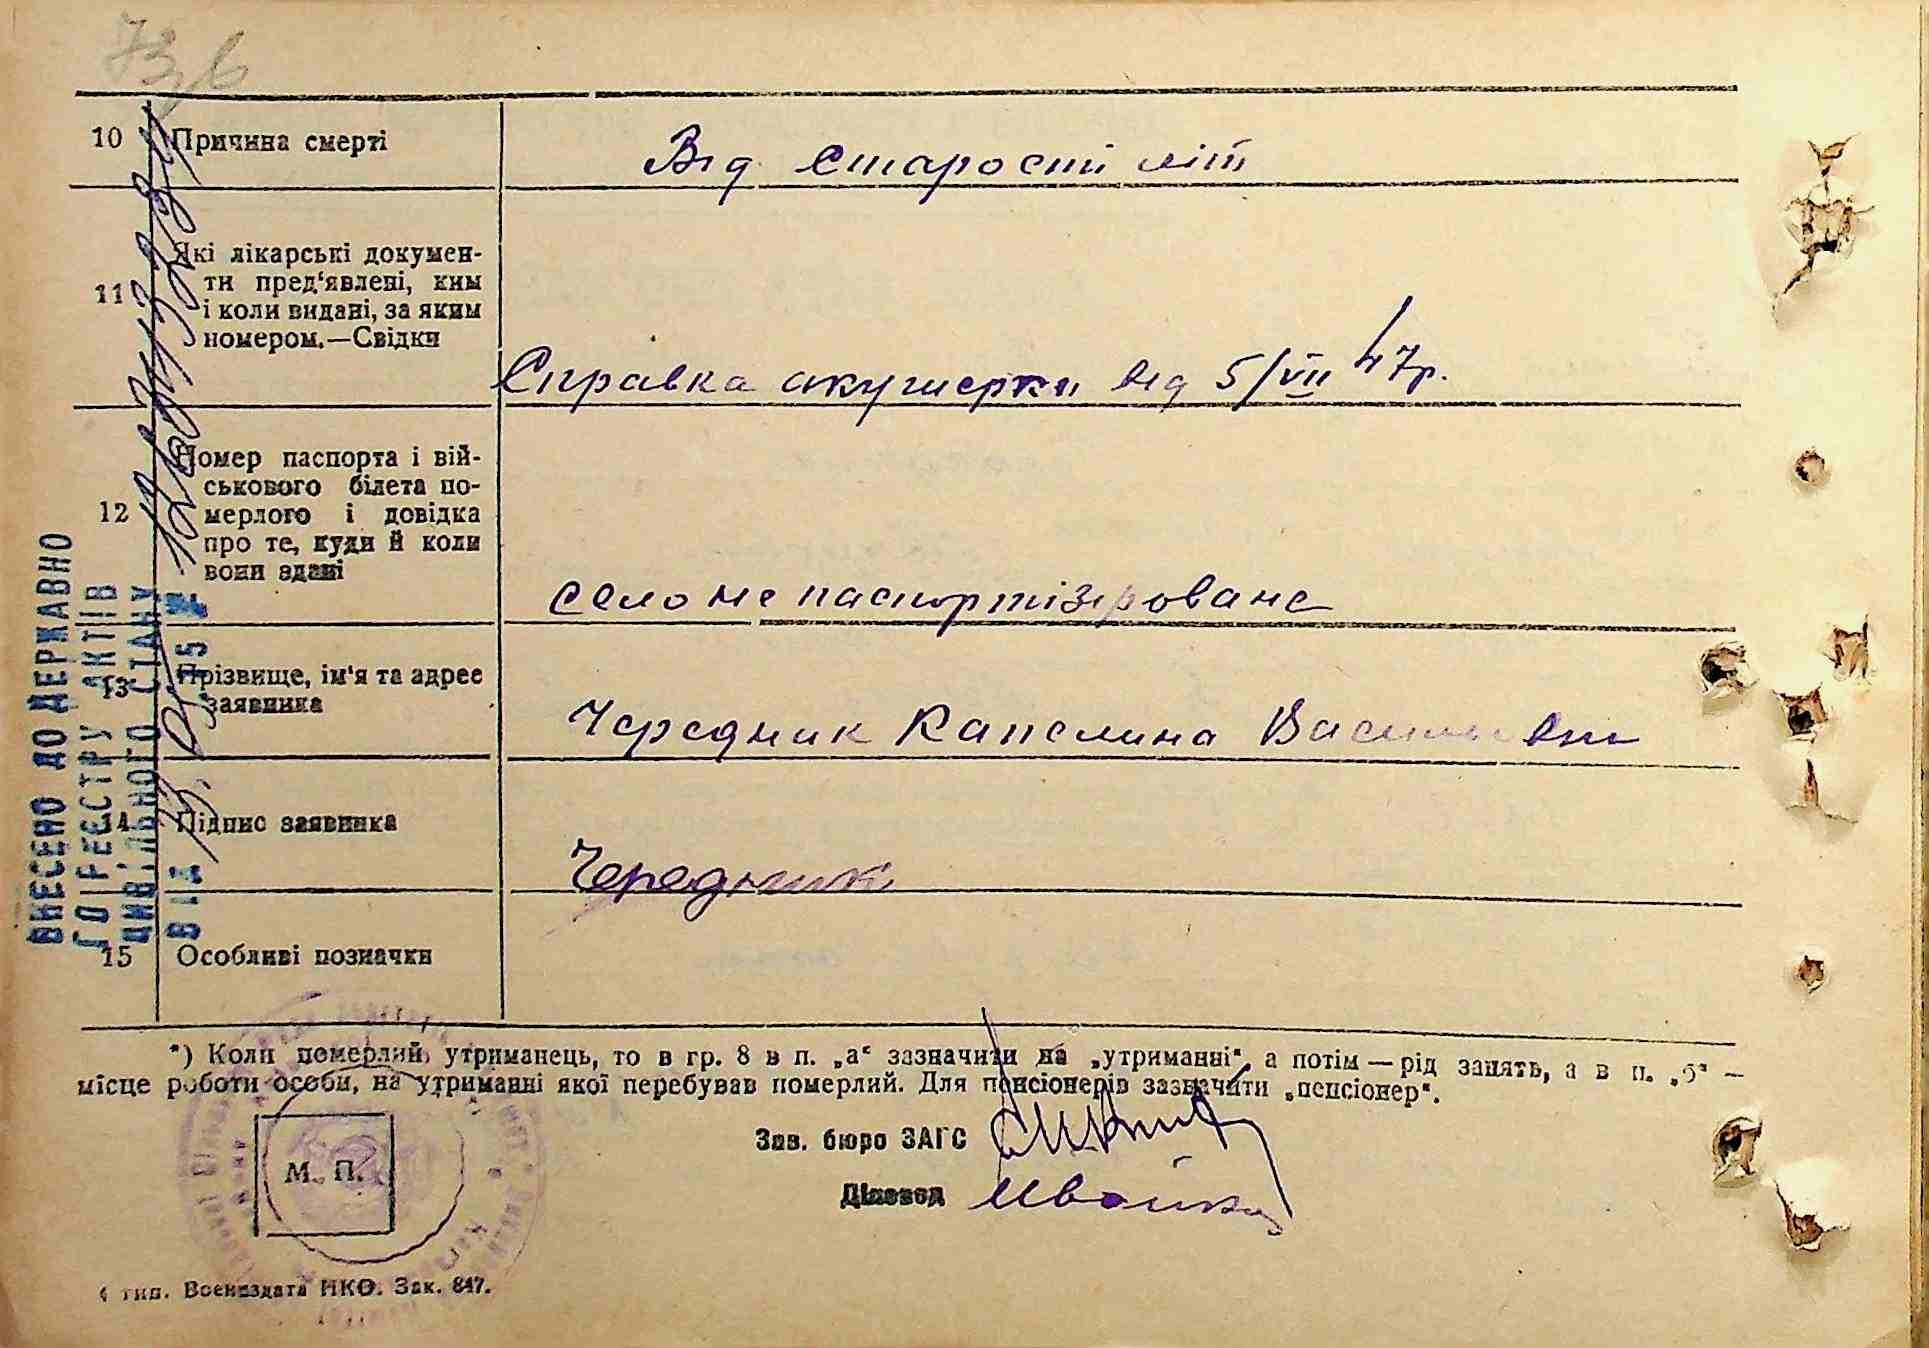 10 Причина смерті Від старости літ
11 Які лікарські докумен-
ти пред'явлені, ким
і коли видані, за яким
номером.—Свідки
Справка акушерки від 5/VII 47р.
12 Номер паспорта і вій-
ськового білета по-
мерлого і довідка
про те, куди й коли
вони здані
село не паспортізіроване
13 Прізвище, ім'я та адрес
заявника
Чередник Капелина
14 Підпис заявника
Чередник
15 Особливі позначки
ВНЕСЕНО ДО ДЕРЖАВНО
ГО РЕЄСТРУ АКТІВ
ЦИВІЛЬНОГО СТАНУ
ВІД
*) Коли померлий утриманець, то в гр. 8 в п. „а“ зазначити на „утриманні“, а потім — рід занять, а в п. „б“ —
місце роботи особи, на утриманні якої перебував померлий. Для пенсіонерів зазначити „пенсіонер“.
Зав. бюро ЗАГС
М. П.
Діловод
тип. Воениздата НКО. Зак. 847.